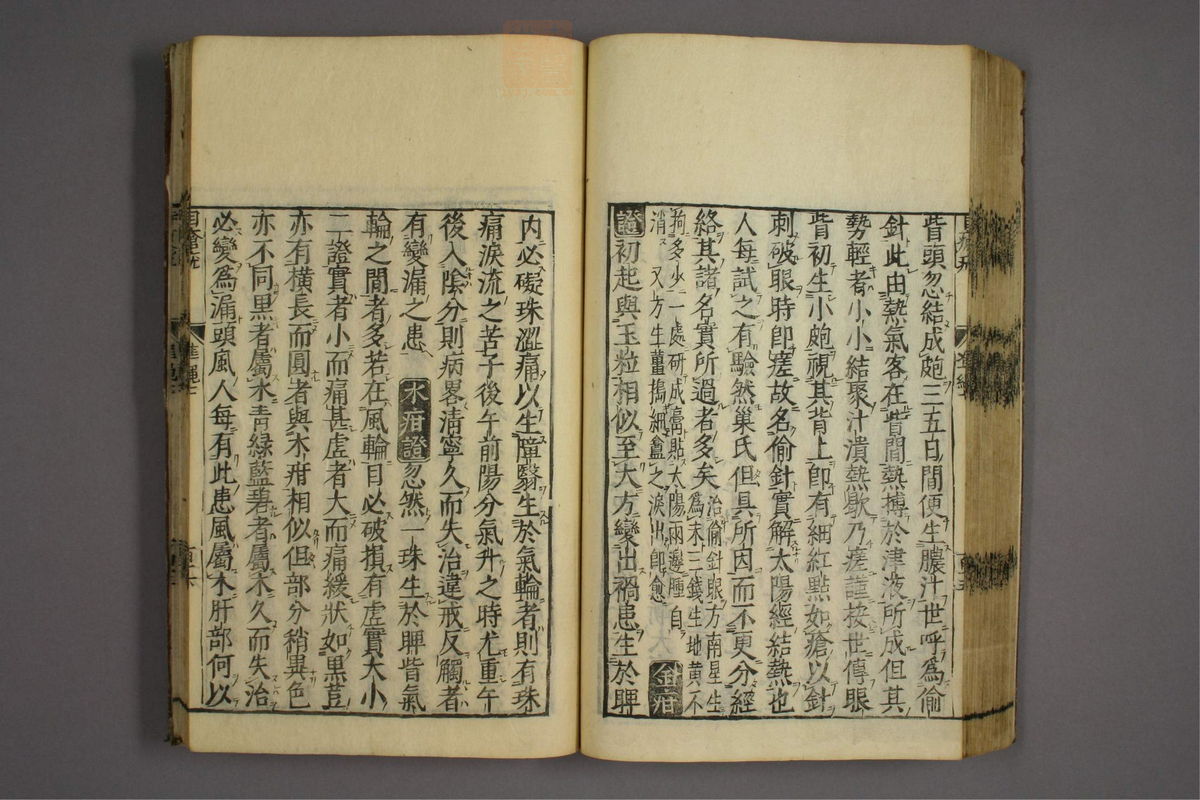 眥頭忽結成皰三五日間便生膿汁世呼爲偷
針此由熱氣客在眥間熱搏於津液所成但其
勢輕者小小結聚汁潰熱歇乃瘥謹按世傳眼
眥初生小皰視其背上卽有細紅點如瘡以針
刺破眼時卽瘥故名偷針實解太陽經結熱也
人每試之有驗然巢氏但具所因而不更分經
絡其諸名實所過者多矣治偷針眼方南星生
爲末三錢生地黃不
拘多少一處研成膏貼太陽兩邊腫自
消 又方生薑搗細盦之淚出卽愈
金疳
證初起與玉粒相似至大方變出禍患生於睥
內必礙珠澀痛以生障翳生於氣輪者則有珠
痛淚流之苦子後午前陽分氣升之時尤重午
後入陰分則病畧淸寧久而失治違戒反觸者
有變漏之患 水疳證忽然一珠生於睥眥氣
輪之間者多若在風輪目必破損有虛實大小
二證實者小而痛甚虛者大而痛緩狀如黑荳
亦有橫長而圓者與木疳相似但部分稍異色
亦不同黑者屬水靑綠藍碧者屬木久而失治
必變爲漏頭風人每有此患風屬木肝部何以